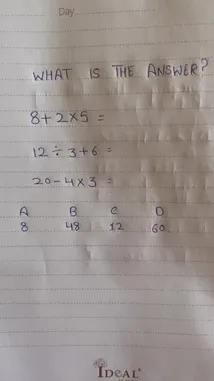 Day
WHAT IS THE ANSWER?
8+2×5 =
12÷3+6 =
20-4×3 =
A B C D
8 48 12 60
IDEAL